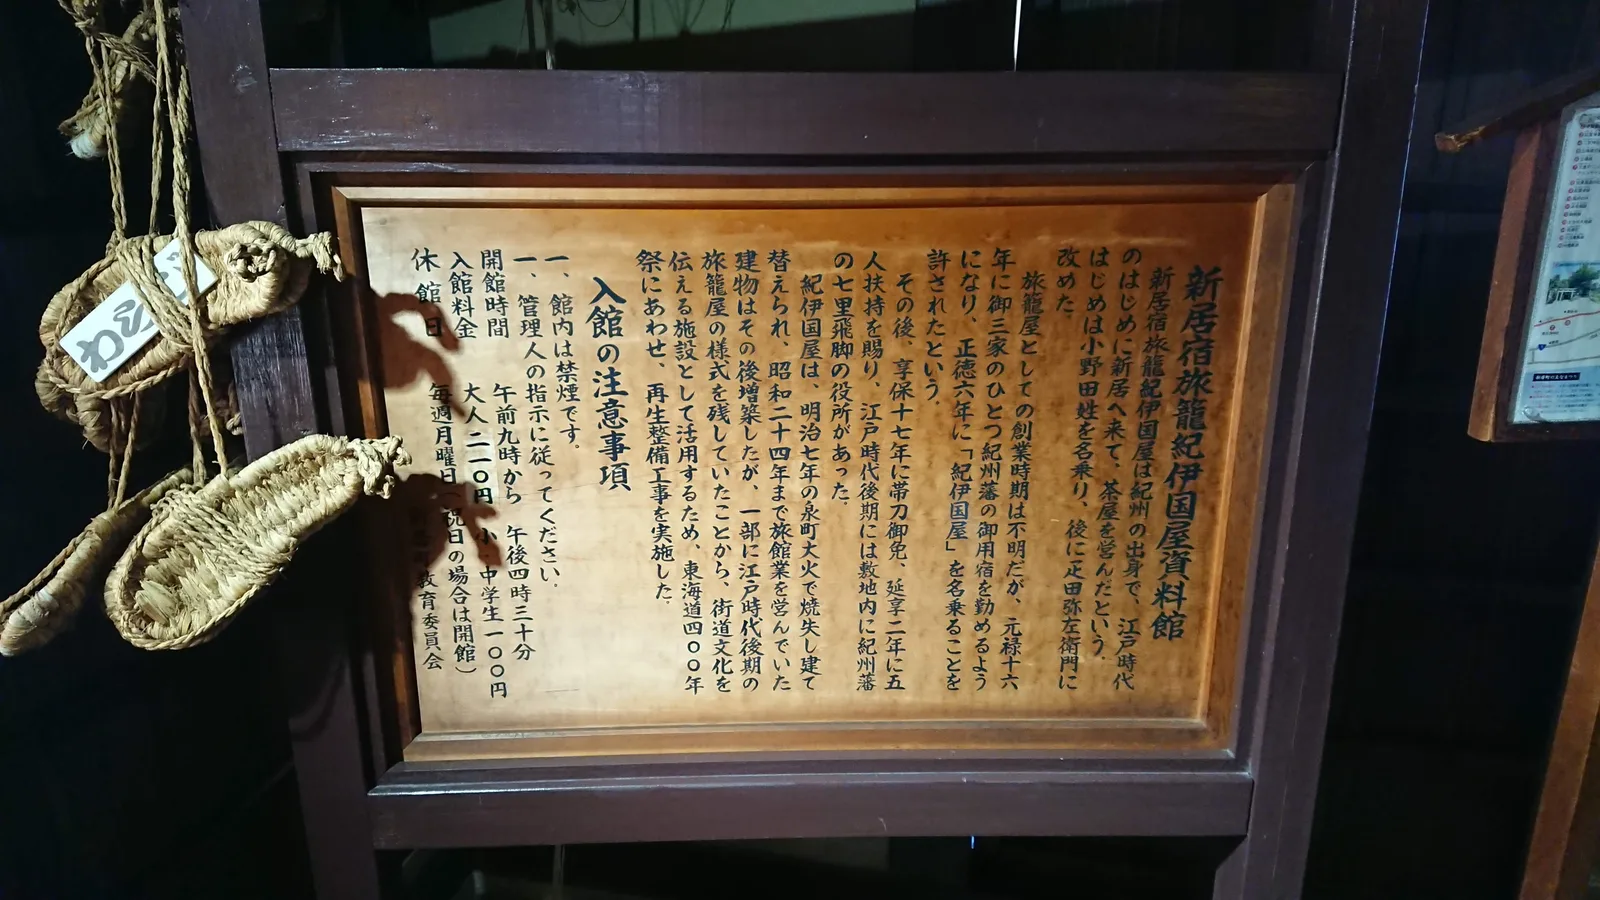 新居宿旅籠紀伊国屋資料館
新居宿旅籠紀伊国屋は紀州の出身で、江戸時代
のはじめに新居へ来て、茶屋を営んだという.
はじめは小野田姓を名乗り、後に疋田弥左衛門に
改めた.
旅籠屋としての創業時期は不明だが、元禄十六
年に御三家のひとつ紀州藩の御用宿を勤めるよう
になり、正徳六年に「紀伊国屋」を名乗ることを
許されたという.
その後、享保十七年に帯刀御免、延享二年に五
人扶持を賜り、江戸時代後期には敷地内に紀州藩
の七里飛脚の役所があった.
紀伊国屋は、明治七年の泉町大火で焼失し建て
替えられ、昭和二十四年まで旅館業を営んでいた
建物はその後増築したが、一部に江戸時代後期の
旅籠屋の様式を残していたことから、街道文化を
伝える施設として活用するため、東海道四〇〇年
祭にあわせ、再生整備工事を実施した.
入館の注意事項
一、館内は禁煙です.
一、管理人の指示に従ってください.
開館時間 午前九時から 午後四時三十分
入館料金 大人二一〇円 小・中学生一〇〇円
休館日 毎週月曜日(祝日の場合は開館)
教育委員会